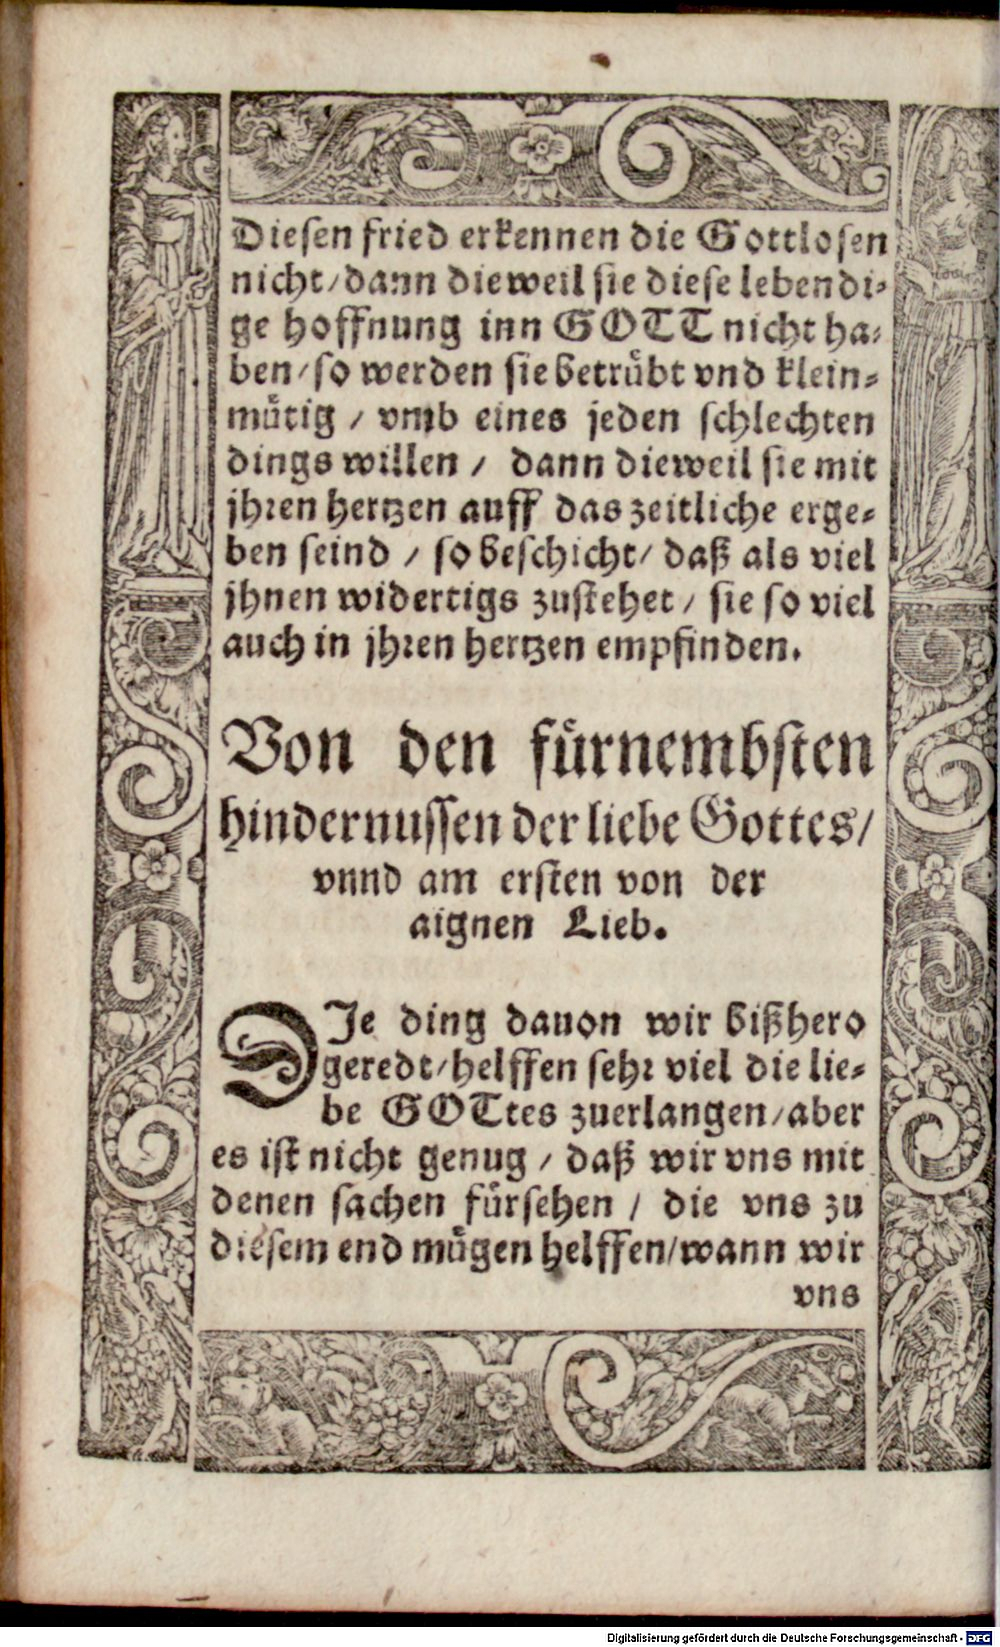 Diesen fried erkennen die Gottlosen
nicht/dann dieweil sie diese lebendi-
ge hoffnung inn GOTT nicht ha-
ben/so werden sie betrübt vnd klein-
mütig / vmb eines jeden schlechten
dings willen / dann dieweil sie mit
jhren hertzen auff das zeitliche erge-
ben seind / so beschicht/ daß als viel
jhnen widertigs zustehet / sie so viel
auch in jhren hertzen empfinden.
Von den fürnembsten
hindernussen der liebe Gottes/
vnnd am ersten von der
aignen Lieb.
DIe ding dauon wir bißhero
geredt/helffen sehr viel die lie-
be GOTtes zuerlangen/aber
es ist nicht genug / daß wir vns mit
denen sachen fürsehen / die vns zu
diesem end mügen helffen/wann wir
vns
Digitalisierung gefördert durch die Deutsche Forschungsgemeinschaft - DFG